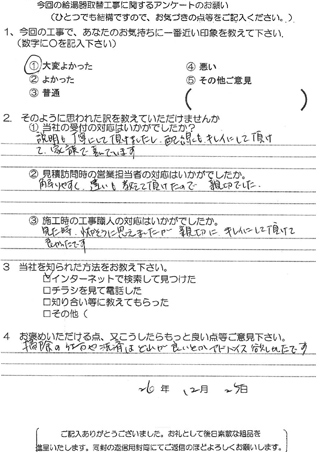 今回の給湯器取替工事に関するアンケートのお願い
(ひとつでも結構ですので、お気づきの点等をご記入ください。)
1、今回の工事で、あなたのお気持ちに一番近い印象を教えて下さい。
(数字に○を記入下さい)
①大変よかった ④悪い
②よかった ⑤その他ご意見
③普通 ( )
2. そのように思われた訳を教えていただけませんか
①当社の受付の対応はいかがでしたか?
説明も にして頂けましたし、配説もキレイにして頂け
て、家族で 喜んでいます
②見積訪問時の営業担当者の対応はいかがでしたか。
りやすく、違いも教えて頂けたので 親切でした。
③施工時の工事職人の対応はいかがでしたか。
見た時、 に思えましたが 親切に、キレイにして頂けて
良かったです
3 当社を知られた方法をお教え下さい。
☑インターネットで検索して見つけた
□チラシを見て電話した
□知り合い等に教えてもらった
□その他(
4 お褒めいただける点、又こうしたらもっと良い点等ご意見下さい。
掃除の仕方や洗剤はどれが良いとかアドバイス欲しかったです
26年 12月 25日
ご記入ありがとうございました。お礼として後日素敵な粗品を
進呈いたします。同封の返信用封筒にてご返信のほどよろしくお願いします。